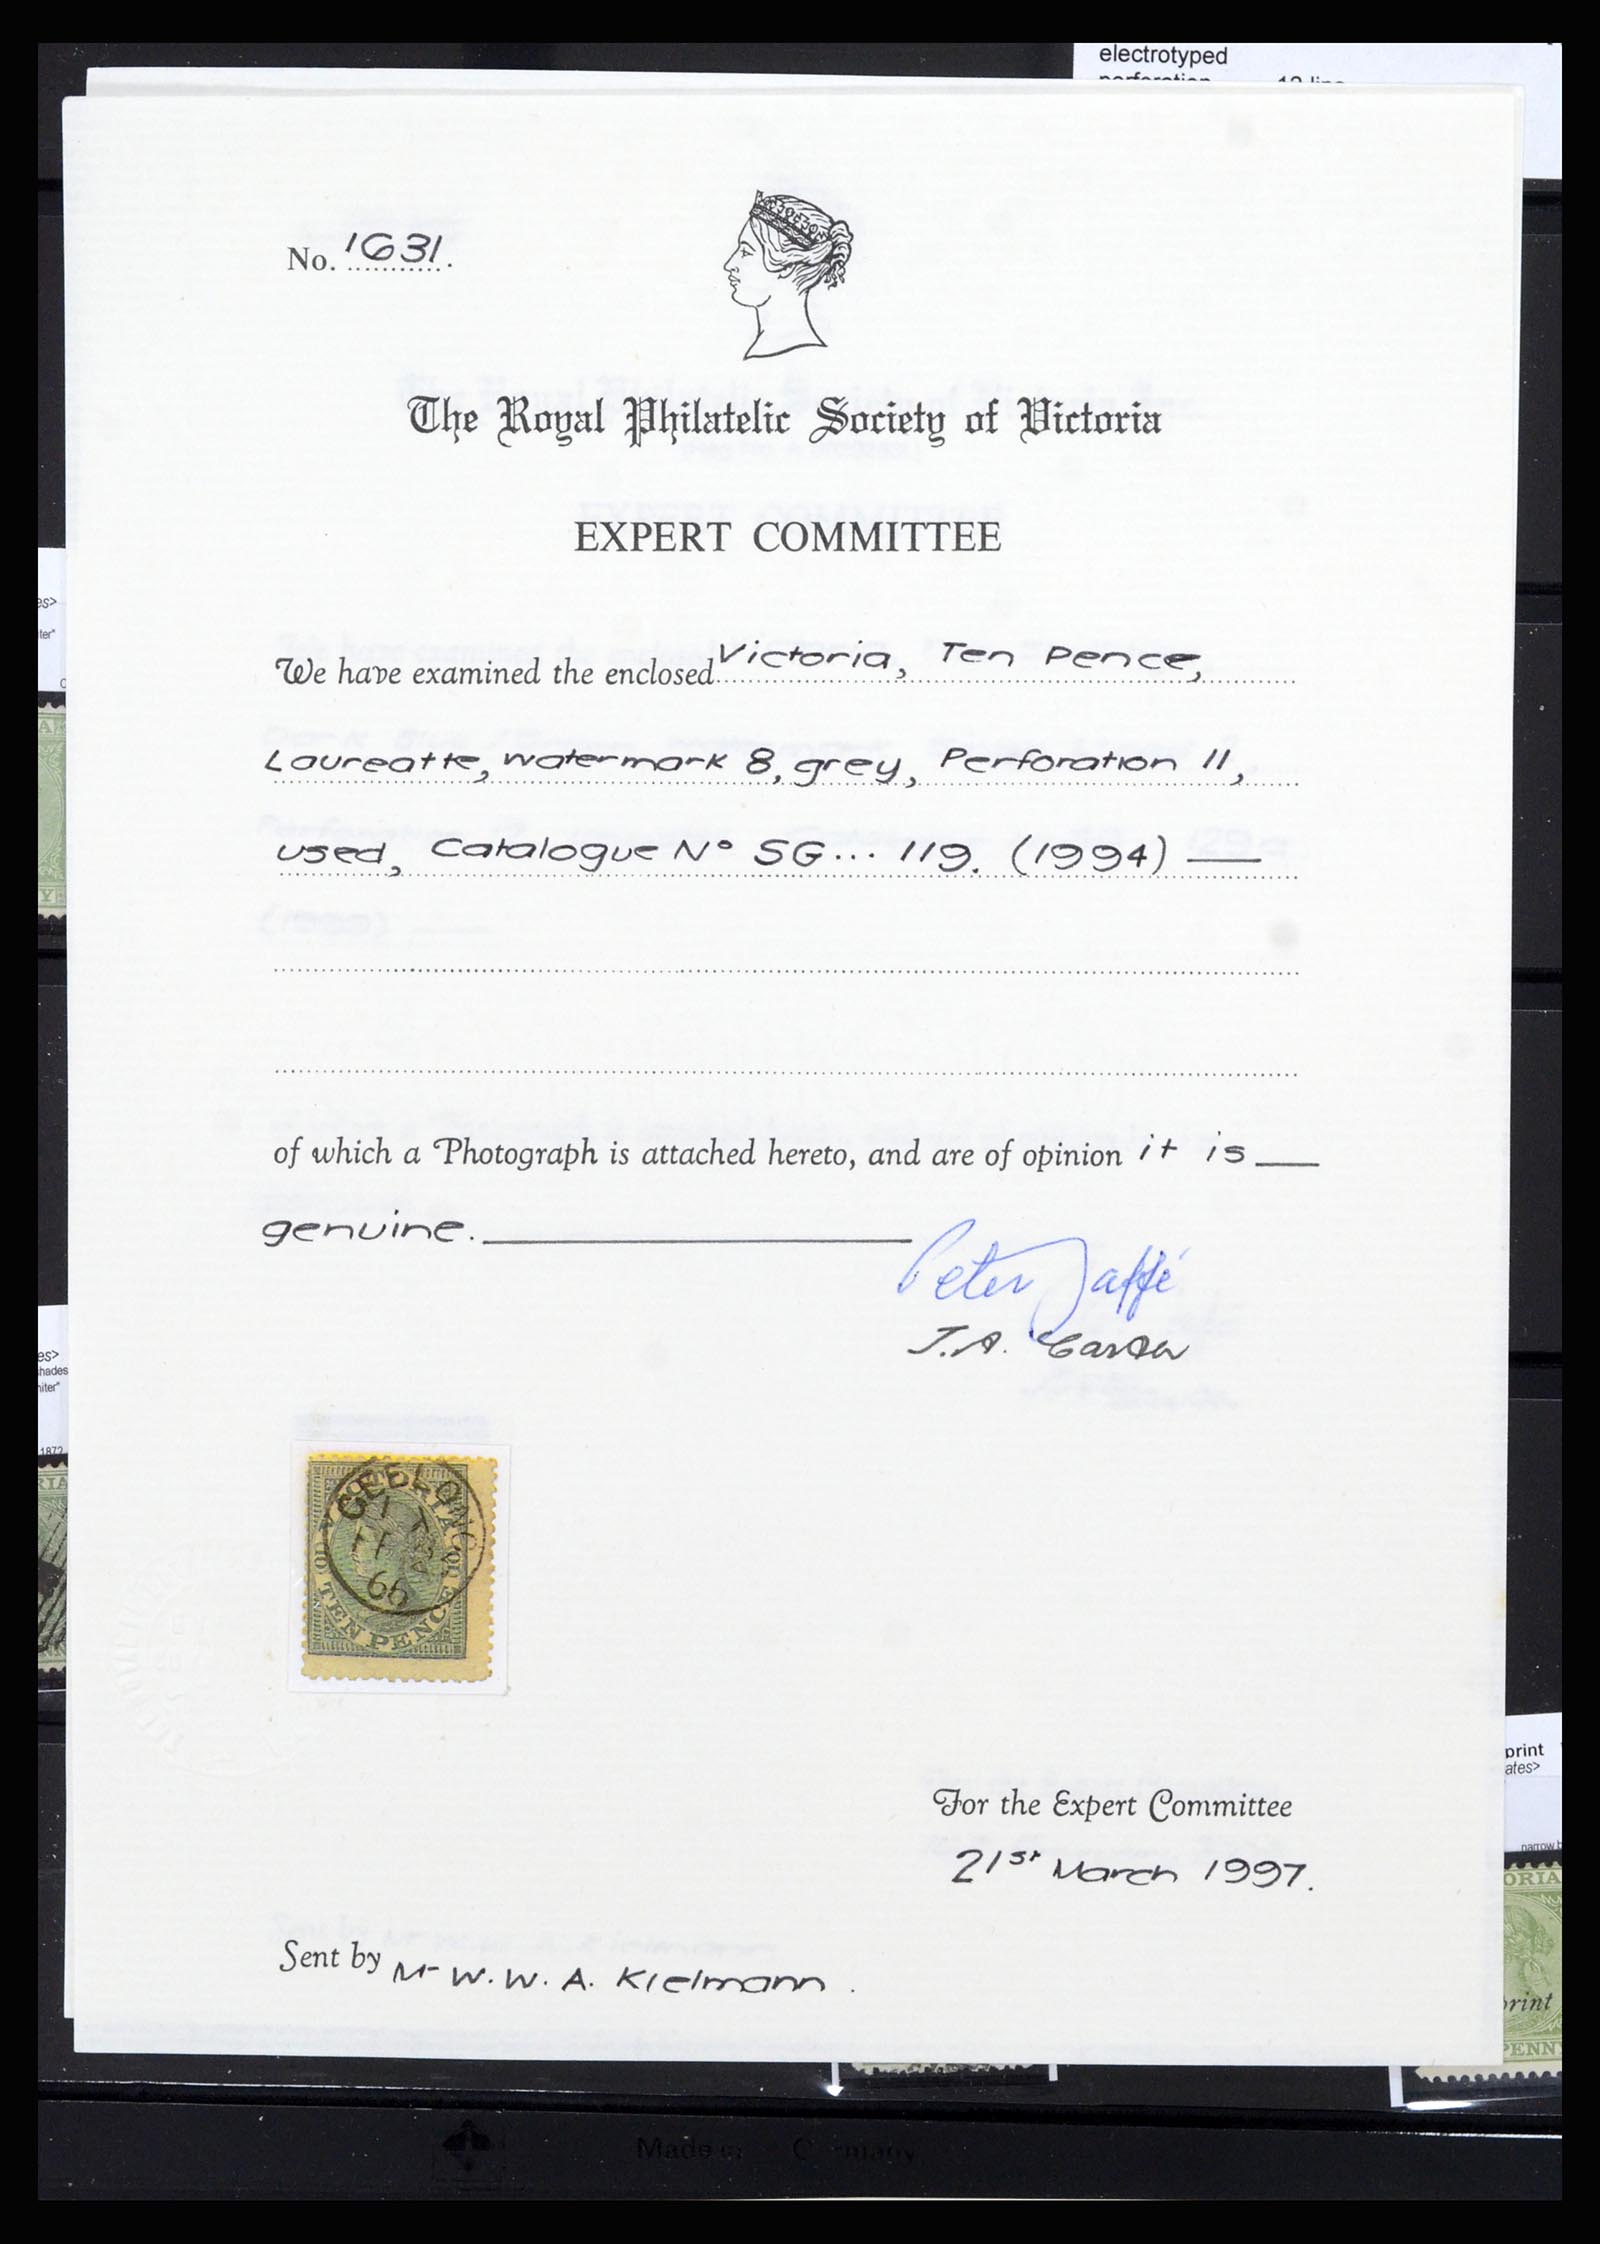 electrotyped
No. 1631.
The Royal Philatelic Society of Victoria
EXPERT COMMITTEE
We have examined the enclosed Victoria, Ten Pence,
Laureatte, watermark 8, grey, Perforation 11,
used, Catalogue Nº SG... 119. (1994)
of which a Photograph is attached hereto, and are of opinion it is
genuine.
Peter Jaffé
J.A. Carter
GEELONG
66
TEN PENCE
For the Expert Committee
21st March 1997.
Sent by Mr W. W. A. Kielmann.
es>
ter"
es>
hades
niter"
1872
print
ates>
narrow b
ORIA
print
PENN
Made in Germany